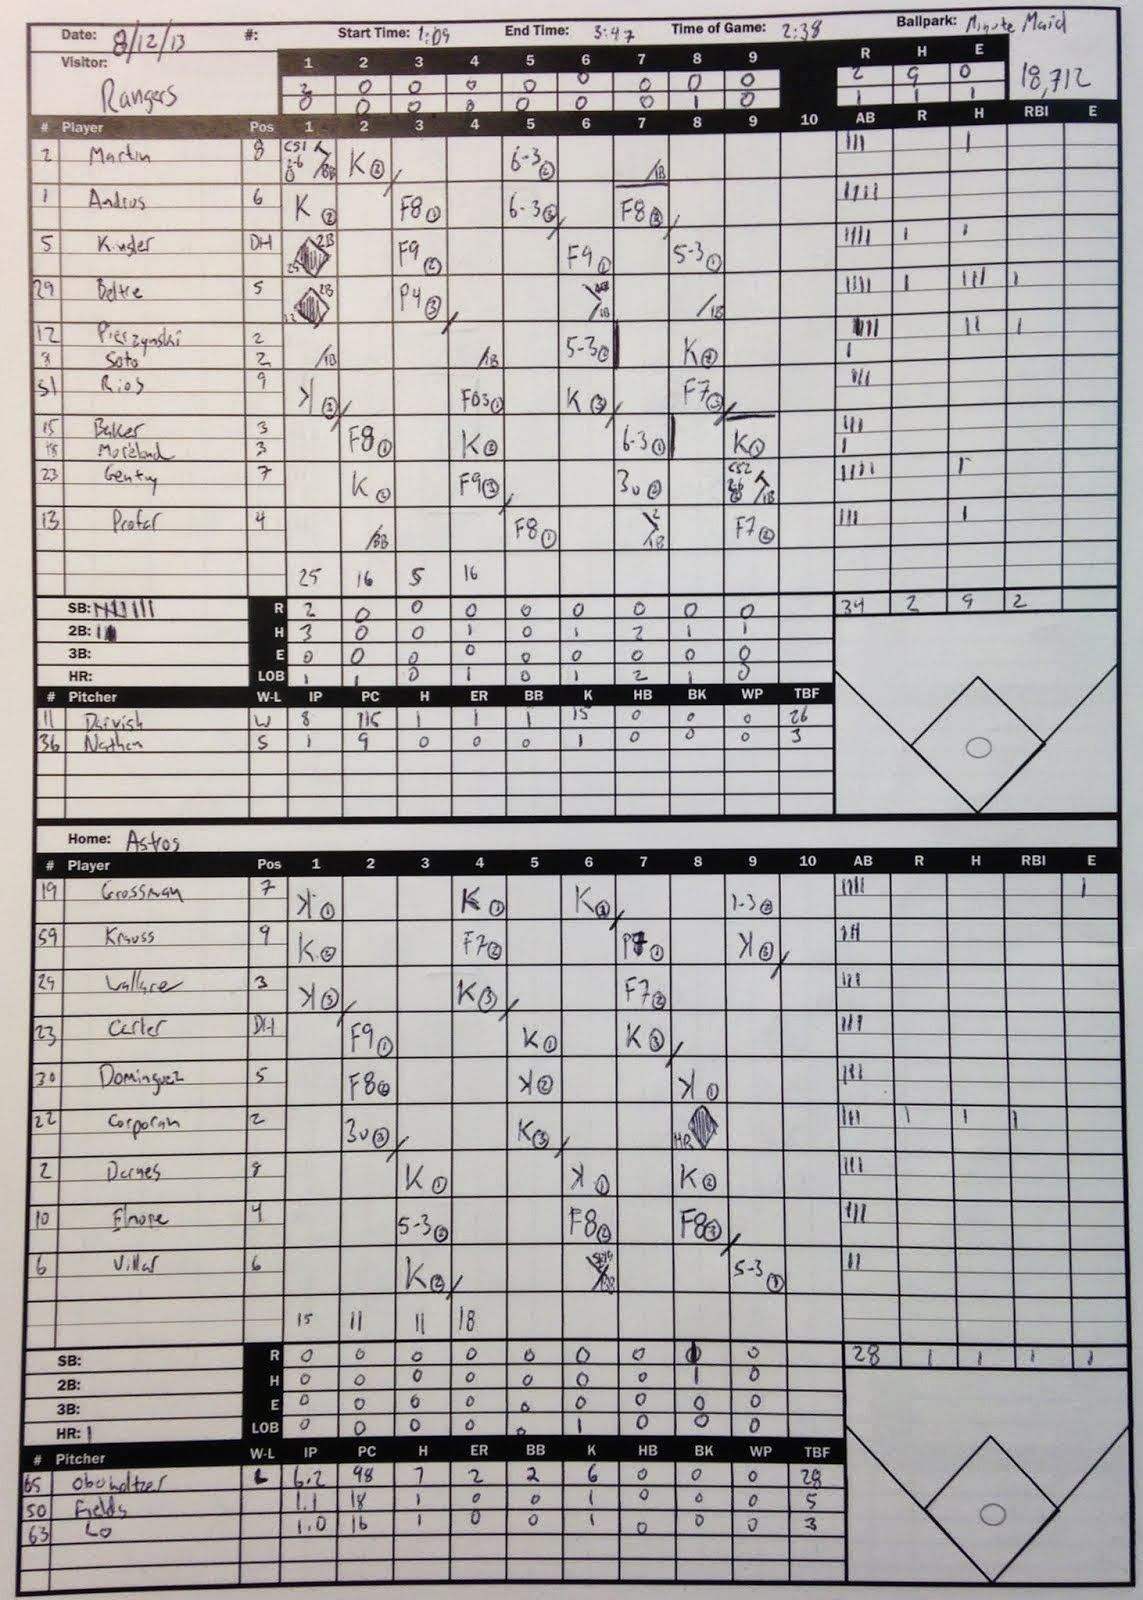 Date: 8/12/13 #: Start Time: 1:09 End Time: 3:47 Time of Game: 2:38 Ballpark: Minute Maid
Visitor: 1 2 3 4 5 6 7 8 9 R H E
Rangers 2 0 0 0 0 0 0 0 0 2 9 0 18,712
0 0 0 0 0 0 0 1 0 1 1 1
# Player Pos 1 2 3 4 5 6 7 8 9 10 AB R H RBI E
2 Martin 8 CS1 2-6 BB K② 6-3② 1B III I
1 Andrus 6 K② F8① 6-3③ F8③ IIII
5 Kinsler DH 2B 25 F9② F9① 5-3① IIII I I
29 Beltre 5 2B P4③ 1B 1B IIII I III I
12 Pierzynski 2 II I
8 Soto 2 1B 1B 5-3② K② I
51 Rios 9 K③ K③ F7③ III
15 Baker 3 III
18 Moreland 3 F8① K② 6-3① K① I
23 Gentry 7 K② F9③ 3u② CS2 2-6 1B IIII I
13 Profar 4 BB F8① 1B F7② III I
25 16 5 16
SB: R 2 0 0 0 0 0 0 0 0 34 2 9 2
2B: H 3 0 0 1 0 1 2 1 1
3B: E 0 0 0 0 0 0 0 0 0
HR: LOB 1 1 0 1 0 1 2 1 0
# Pitcher W-L IP PC H ER BB K HB BK WP TBF
11 Darvish W 8 115 1 1 1 15 0 0 0 26
36 Nathan S 1 9 0 0 0 1 0 0 0 3
Home: Astros
# Player Pos 1 2 3 4 5 6 7 8 9 10 AB R H RBI E
19 Grossman 7 K① K① K③ 1-3② IIII I
59 Krauss 9 K② F7② ① K③ IIII
29 Wallace 3 K③ K③ F7② III
23 Carter DH F9① K① K③ III
30 Dominguez 5 F8② K② K① III
22 Corporan 2 3u③ K③ HR III I I I
2 Barnes 8 K① K① K② III
10 Elmore 4 5-3② F8② F8③ III
6 Villar 6 K③ BB 5-3① II
15 11 11 18
SB: R 0 0 0 0 0 0 0 1 0 28 1 1 1 1
2B: H 0 0 0 0 0 0 0 1 0
3B: E 0 0 0 0 0 0 0 0 0
HR: I LOB 0 0 0 0 0 1 0 0 0
# Pitcher W-L IP PC H ER BB K HB BK WP TBF
65 Oberholtzer L 6.2 98 7 2 2 6 0 0 0 28
50 Fields 1.1 18 1 0 0 1 0 0 0 5
63 Lo 1.0 16 1 0 0 1 0 0 0 3